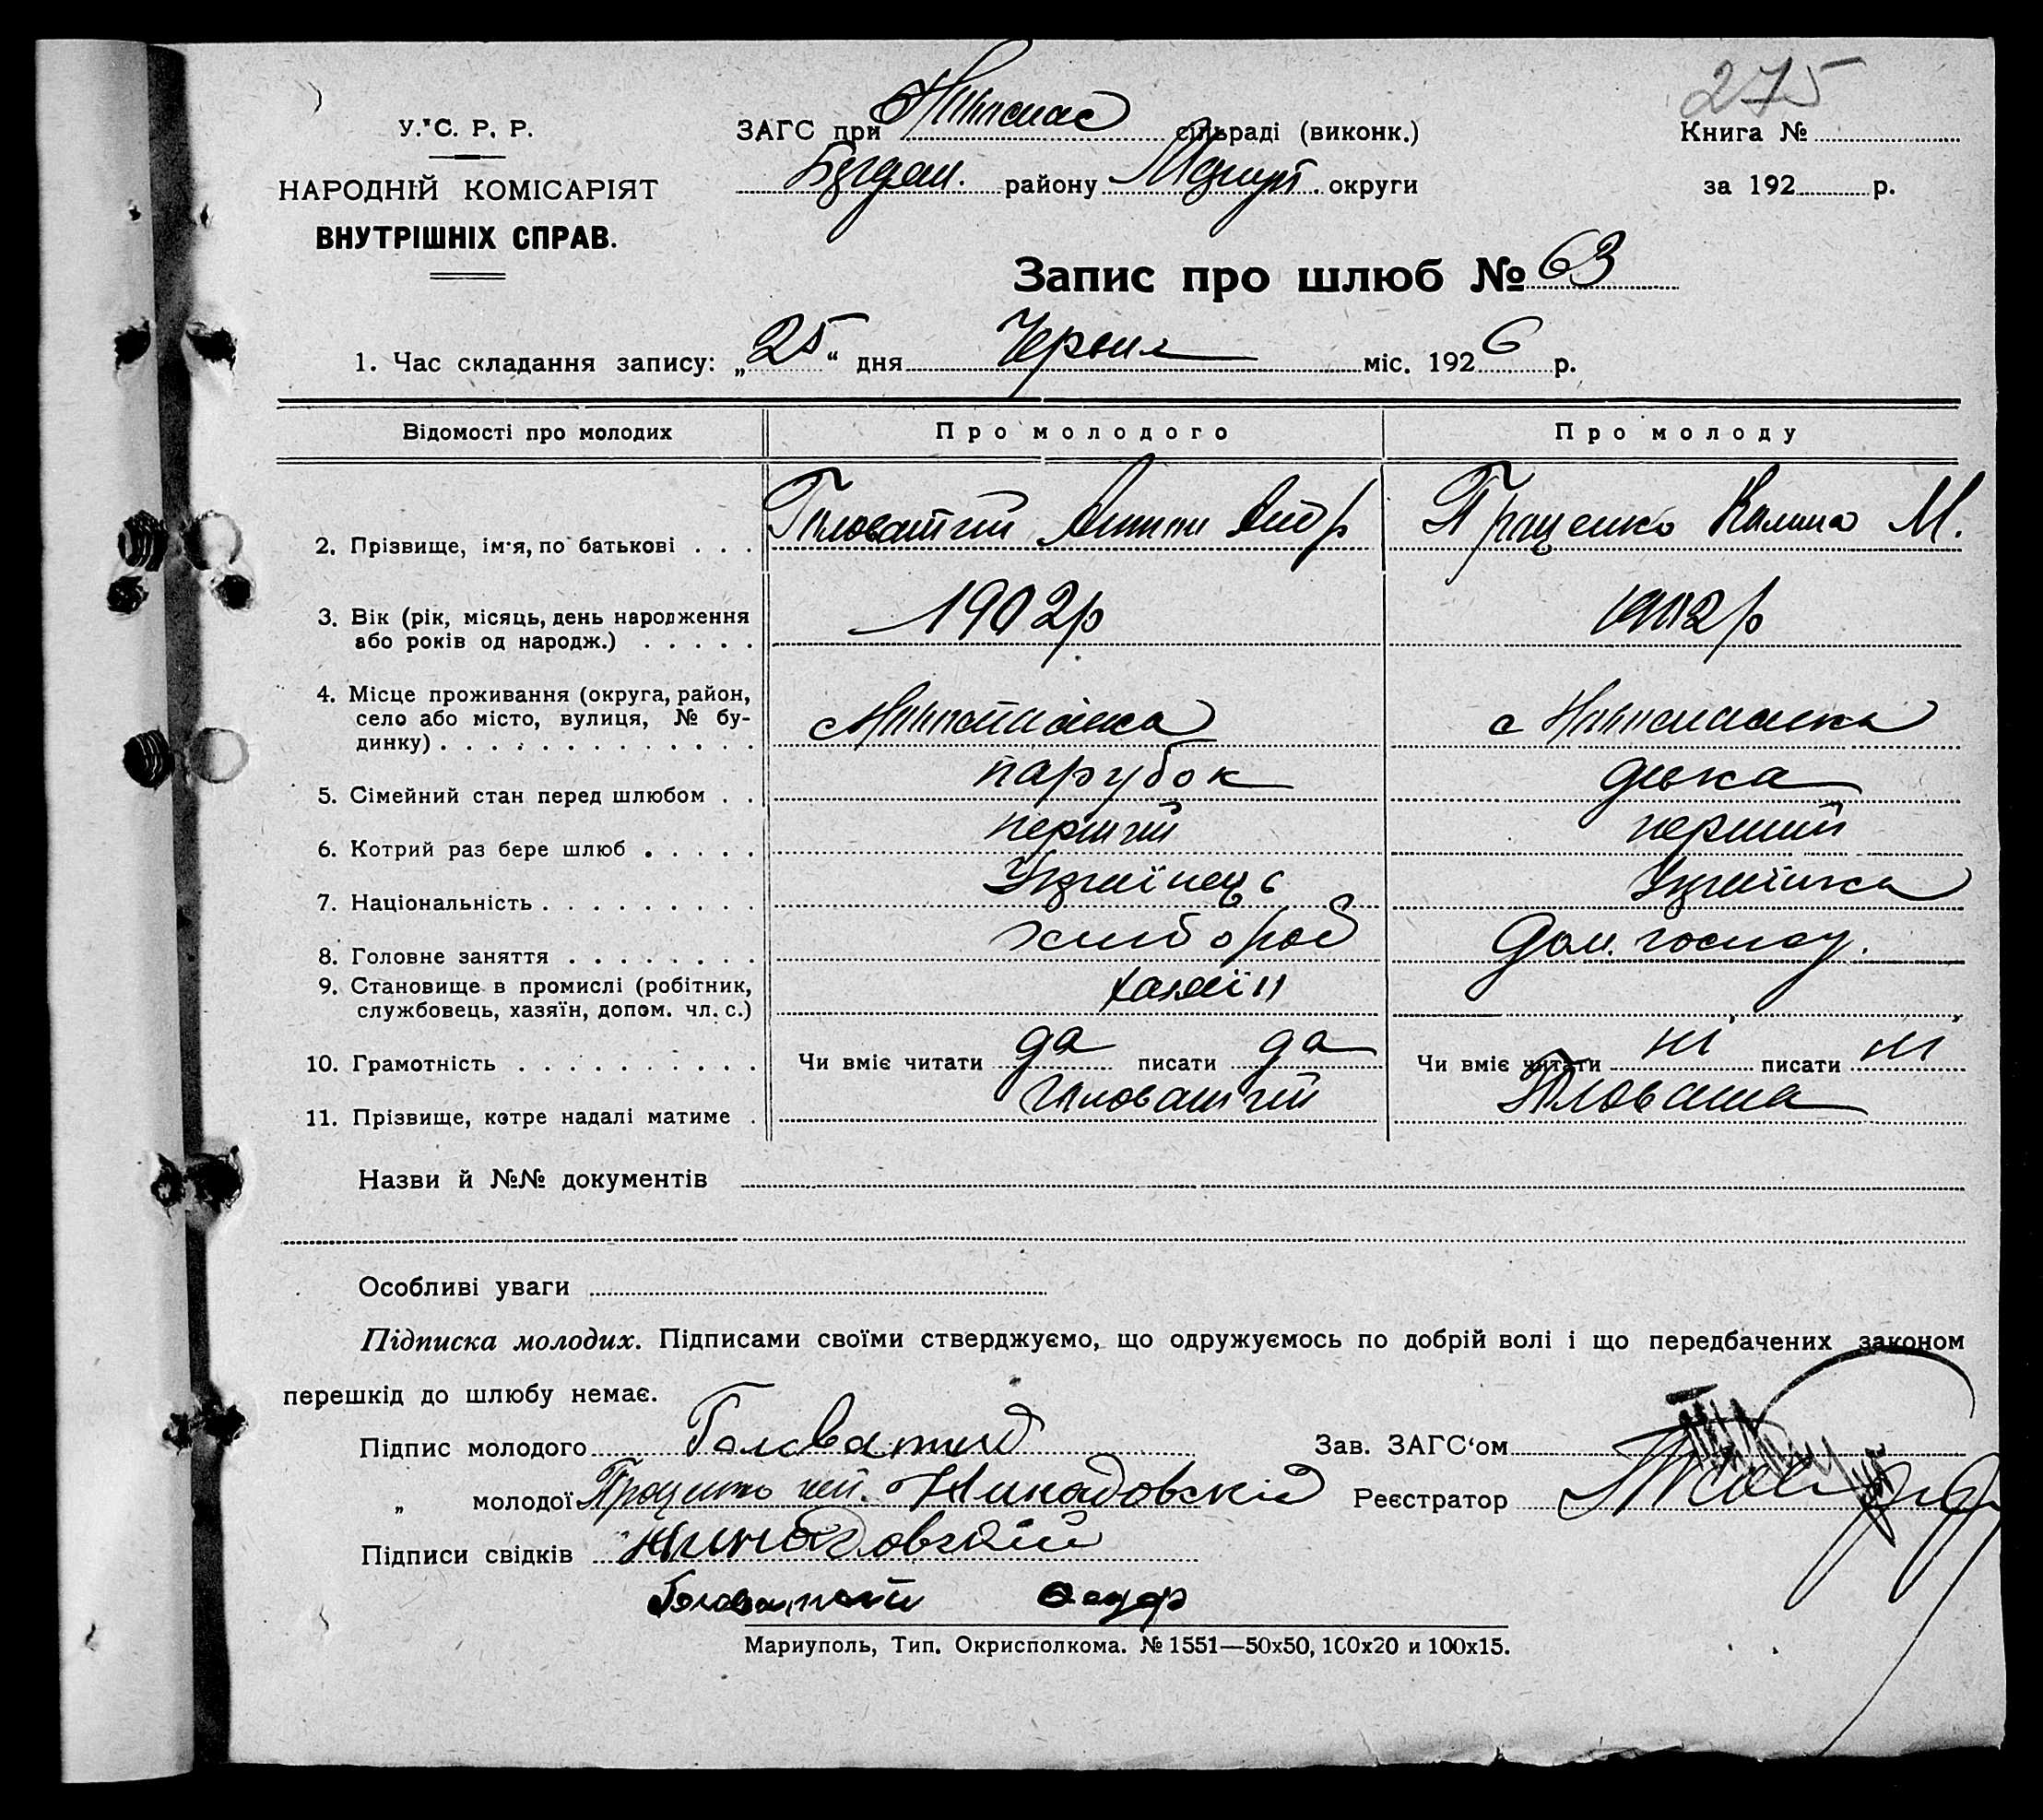 275
У. С. Р. Р.
НАРОДНІЙ КОМІСАРІЯТ
ВНУТРІШНІХ СПРАВ.
ЗАГС при сільраді (виконк.)
району округи
Книга №
за 192 р.
Запис про шлюб № 63
1. Час складання запису: „25“ дня Червня міс. 1926 р.
Відомості про молодих Про молодого Про молоду
2. Прізвище, ім'я, по батькові . . . Головатий Антон Проценко М.
3. Вік (рік, місяць, день народження
або років од народж.) . . . . . 1902р 1902р
4. Місце проживання (округа, район,
село або місто, вулиця, № бу-
динку) . . . . . . . . . . . . . с с
5. Сімейний стан перед шлюбом . . парубок дівка
6. Котрий раз бере шлюб . . . . . перший перший
7. Національність . . . . . . . . . Українець Українка
8. Головне заняття . . . . . . . . хлібороб Дом. господ.
9. Становище в промислі (робітник,
службовець, хазяїн, допом. чл. с.) хазяїн
10. Грамотність . . . . . . . . . . Чи вміє читати да писати да Чи вміє читати ні писати ні
11. Прізвище, котре надалі матиме . Головатий Головата
Назви й №№ документів
Особливі уваги
Підписка молодих. Підписами своїми стверджуємо, що одружуємось по добрій волі і що передбачених законом
перешкід до шлюбу немає.
Підпис молодого Головатий Зав. ЗАГС‘ом
„ молодої Проценко Реєстратор
Підписи свідків
Головатий
Мариуполь, Тип. Окрисполкома. № 1551—50х50, 100х20 и 100х15.